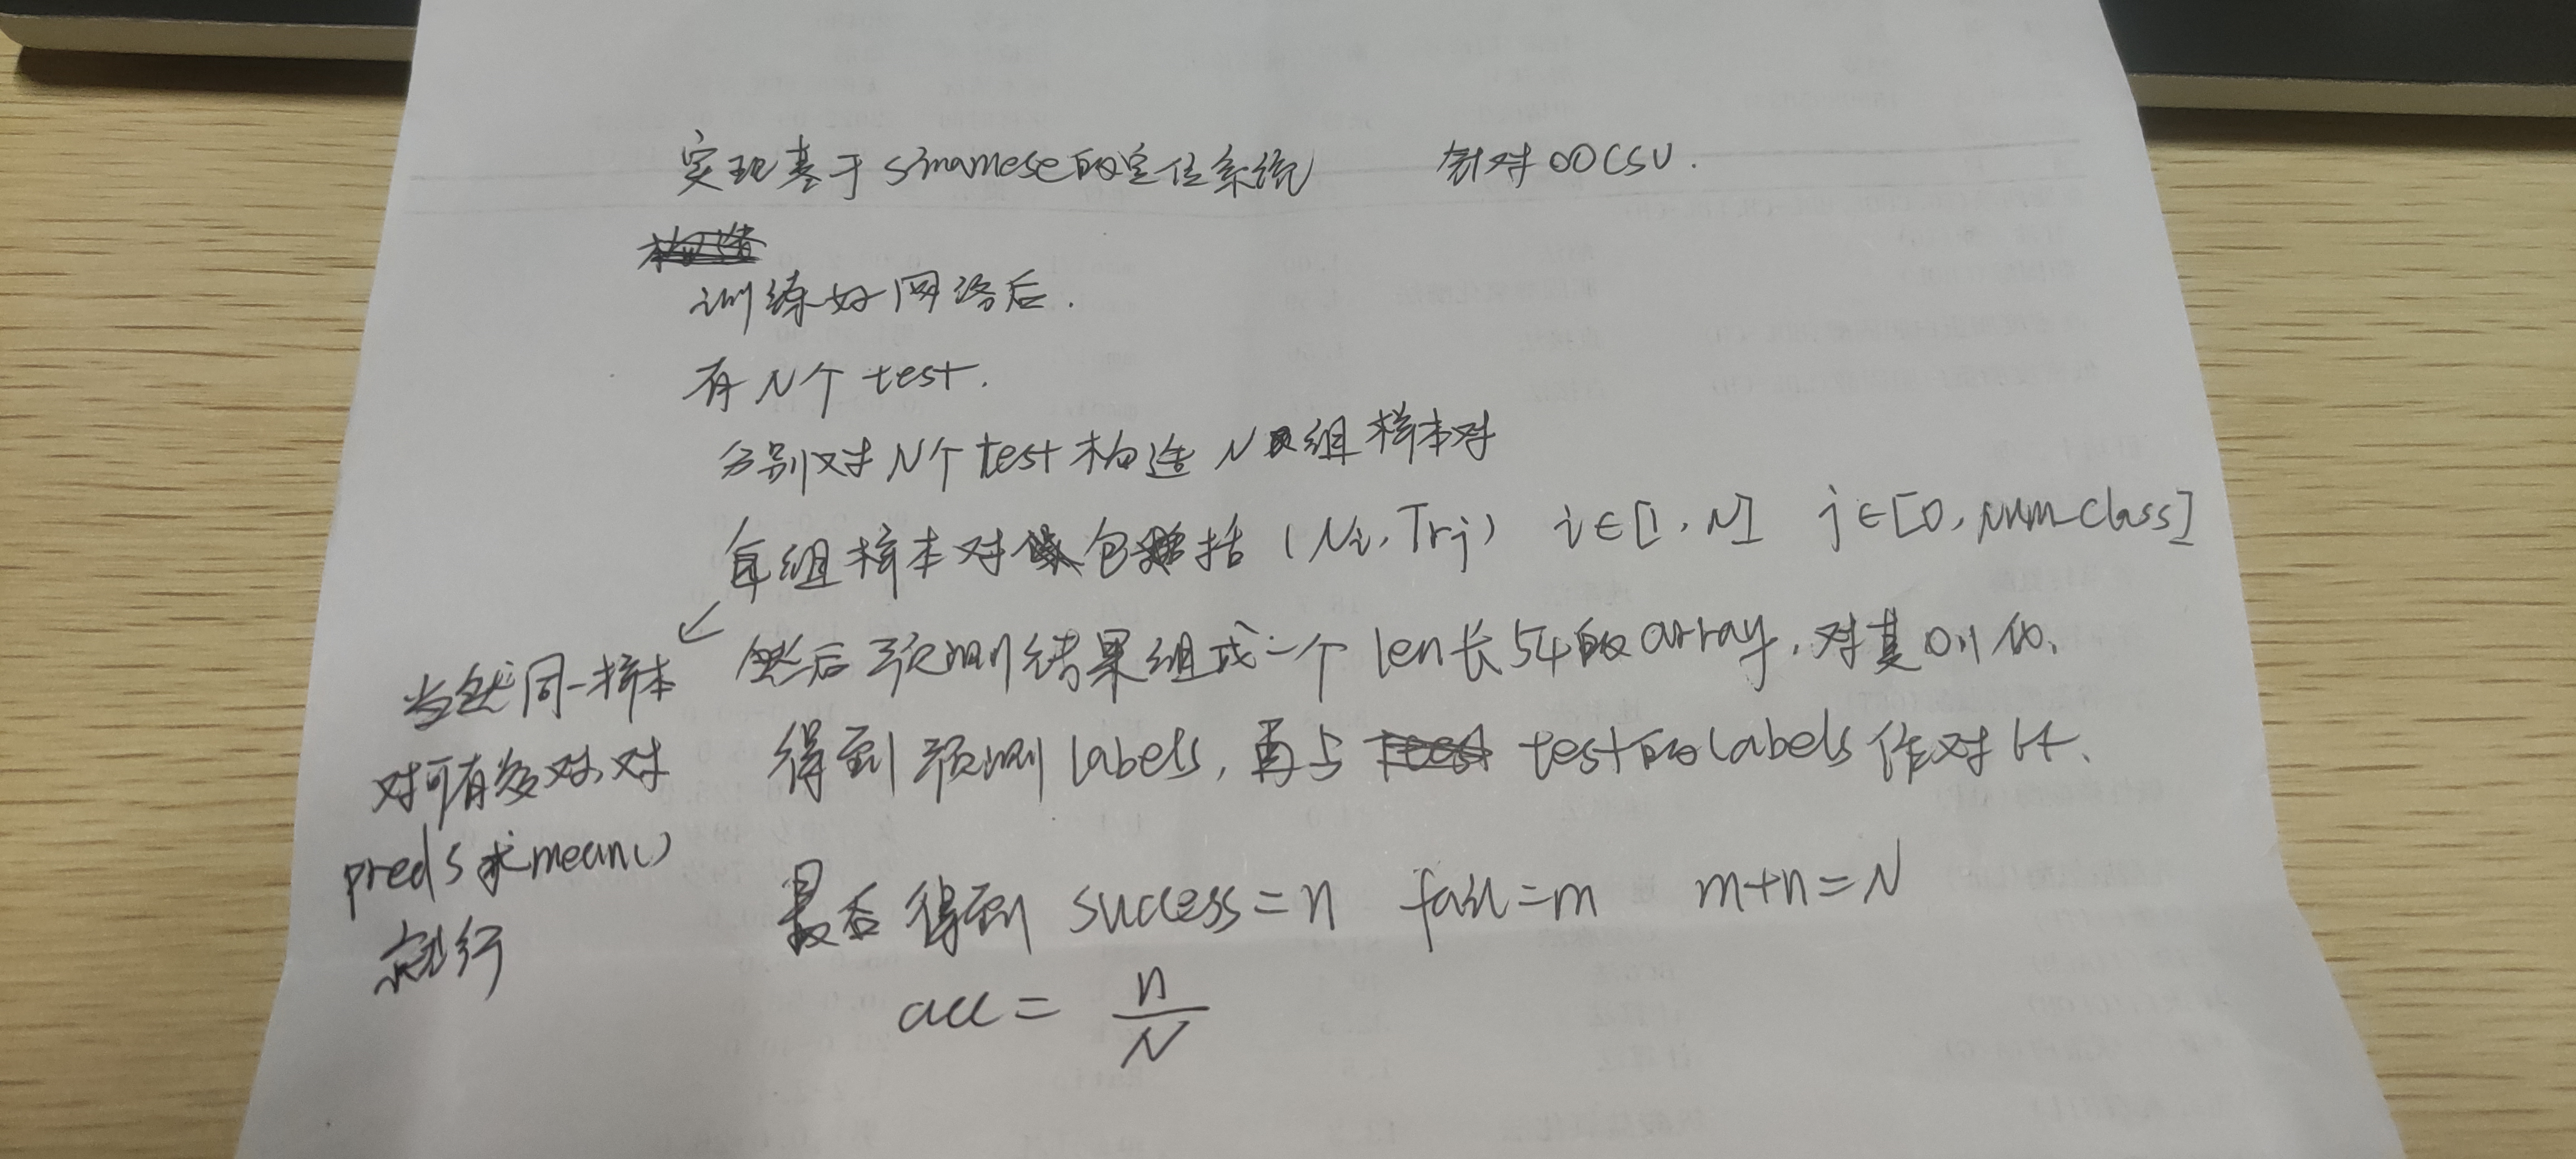 实现基于sinamese的定位系统 针对00CSV.
训练好网络后.
有N个test.
分别对N个test构造N组样本对
每组样本对包括(Ni,Trj) i∈[1,N] j∈[0,num-class]
然后预测结果组成一个len长54的array,对其01化、
得到预测labels,再与test的labels作对比、
最后得到success=n fail=m m+n=N
acc=n/N
当然同一样本
对可有多对,对
preds求mean()
就行